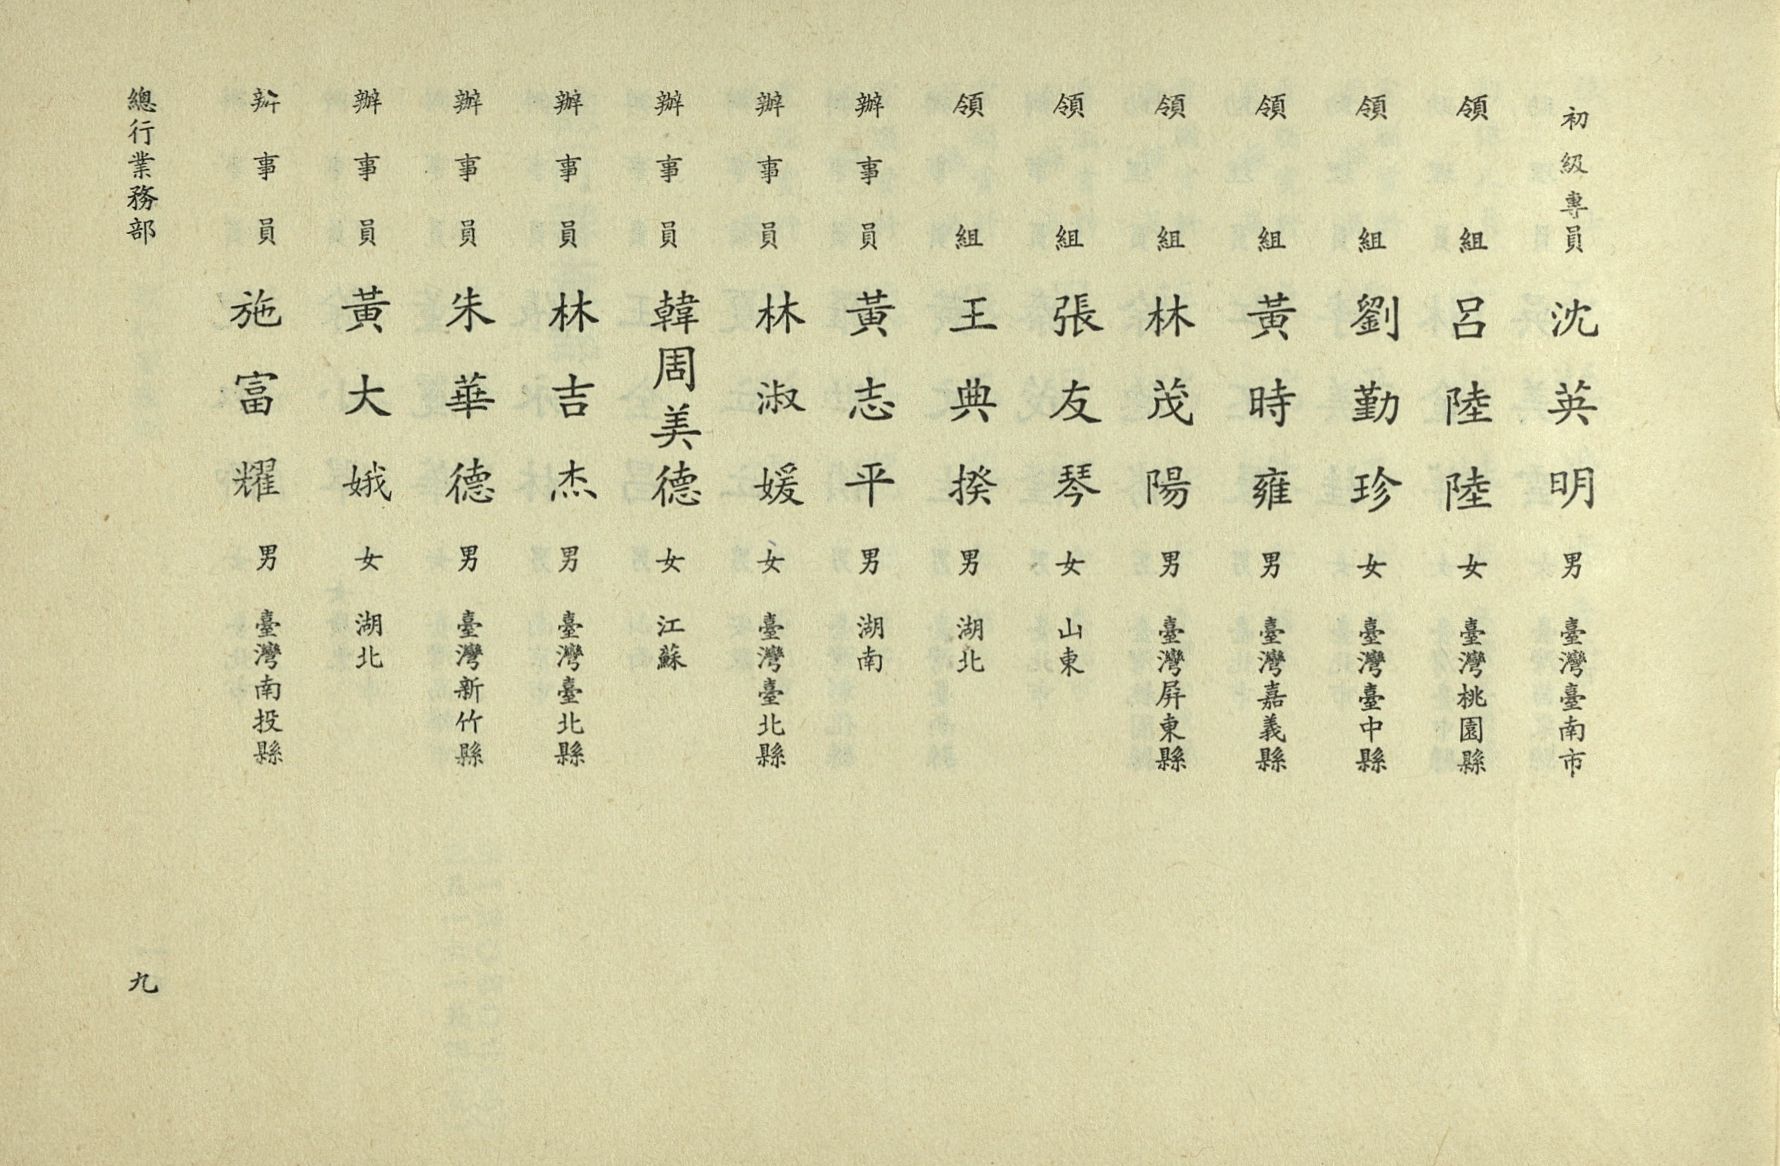 初級專員 沈英明 男 臺灣臺南市
領組 呂陸陸 女 臺灣桃園縣
領組 劉勤珍 女 臺灣臺中縣
領組 黃時雍 男 臺灣嘉義縣
領組 林茂陽 男 臺灣屏東縣
領組 張友琴 女 山東
領組 王典揆 男 湖北
辦事員 黃志平 男 湖南
辦事員 林淑媛 女 臺灣臺北縣
辦事員 韓周美德 女 江蘇
辦事員 林吉杰 男 臺灣臺北縣
辦事員 朱華德 男 臺灣新竹縣
辦事員 黃大娥 女 湖北
辦事員 施富耀 男 臺灣南投縣
總行業務部
九